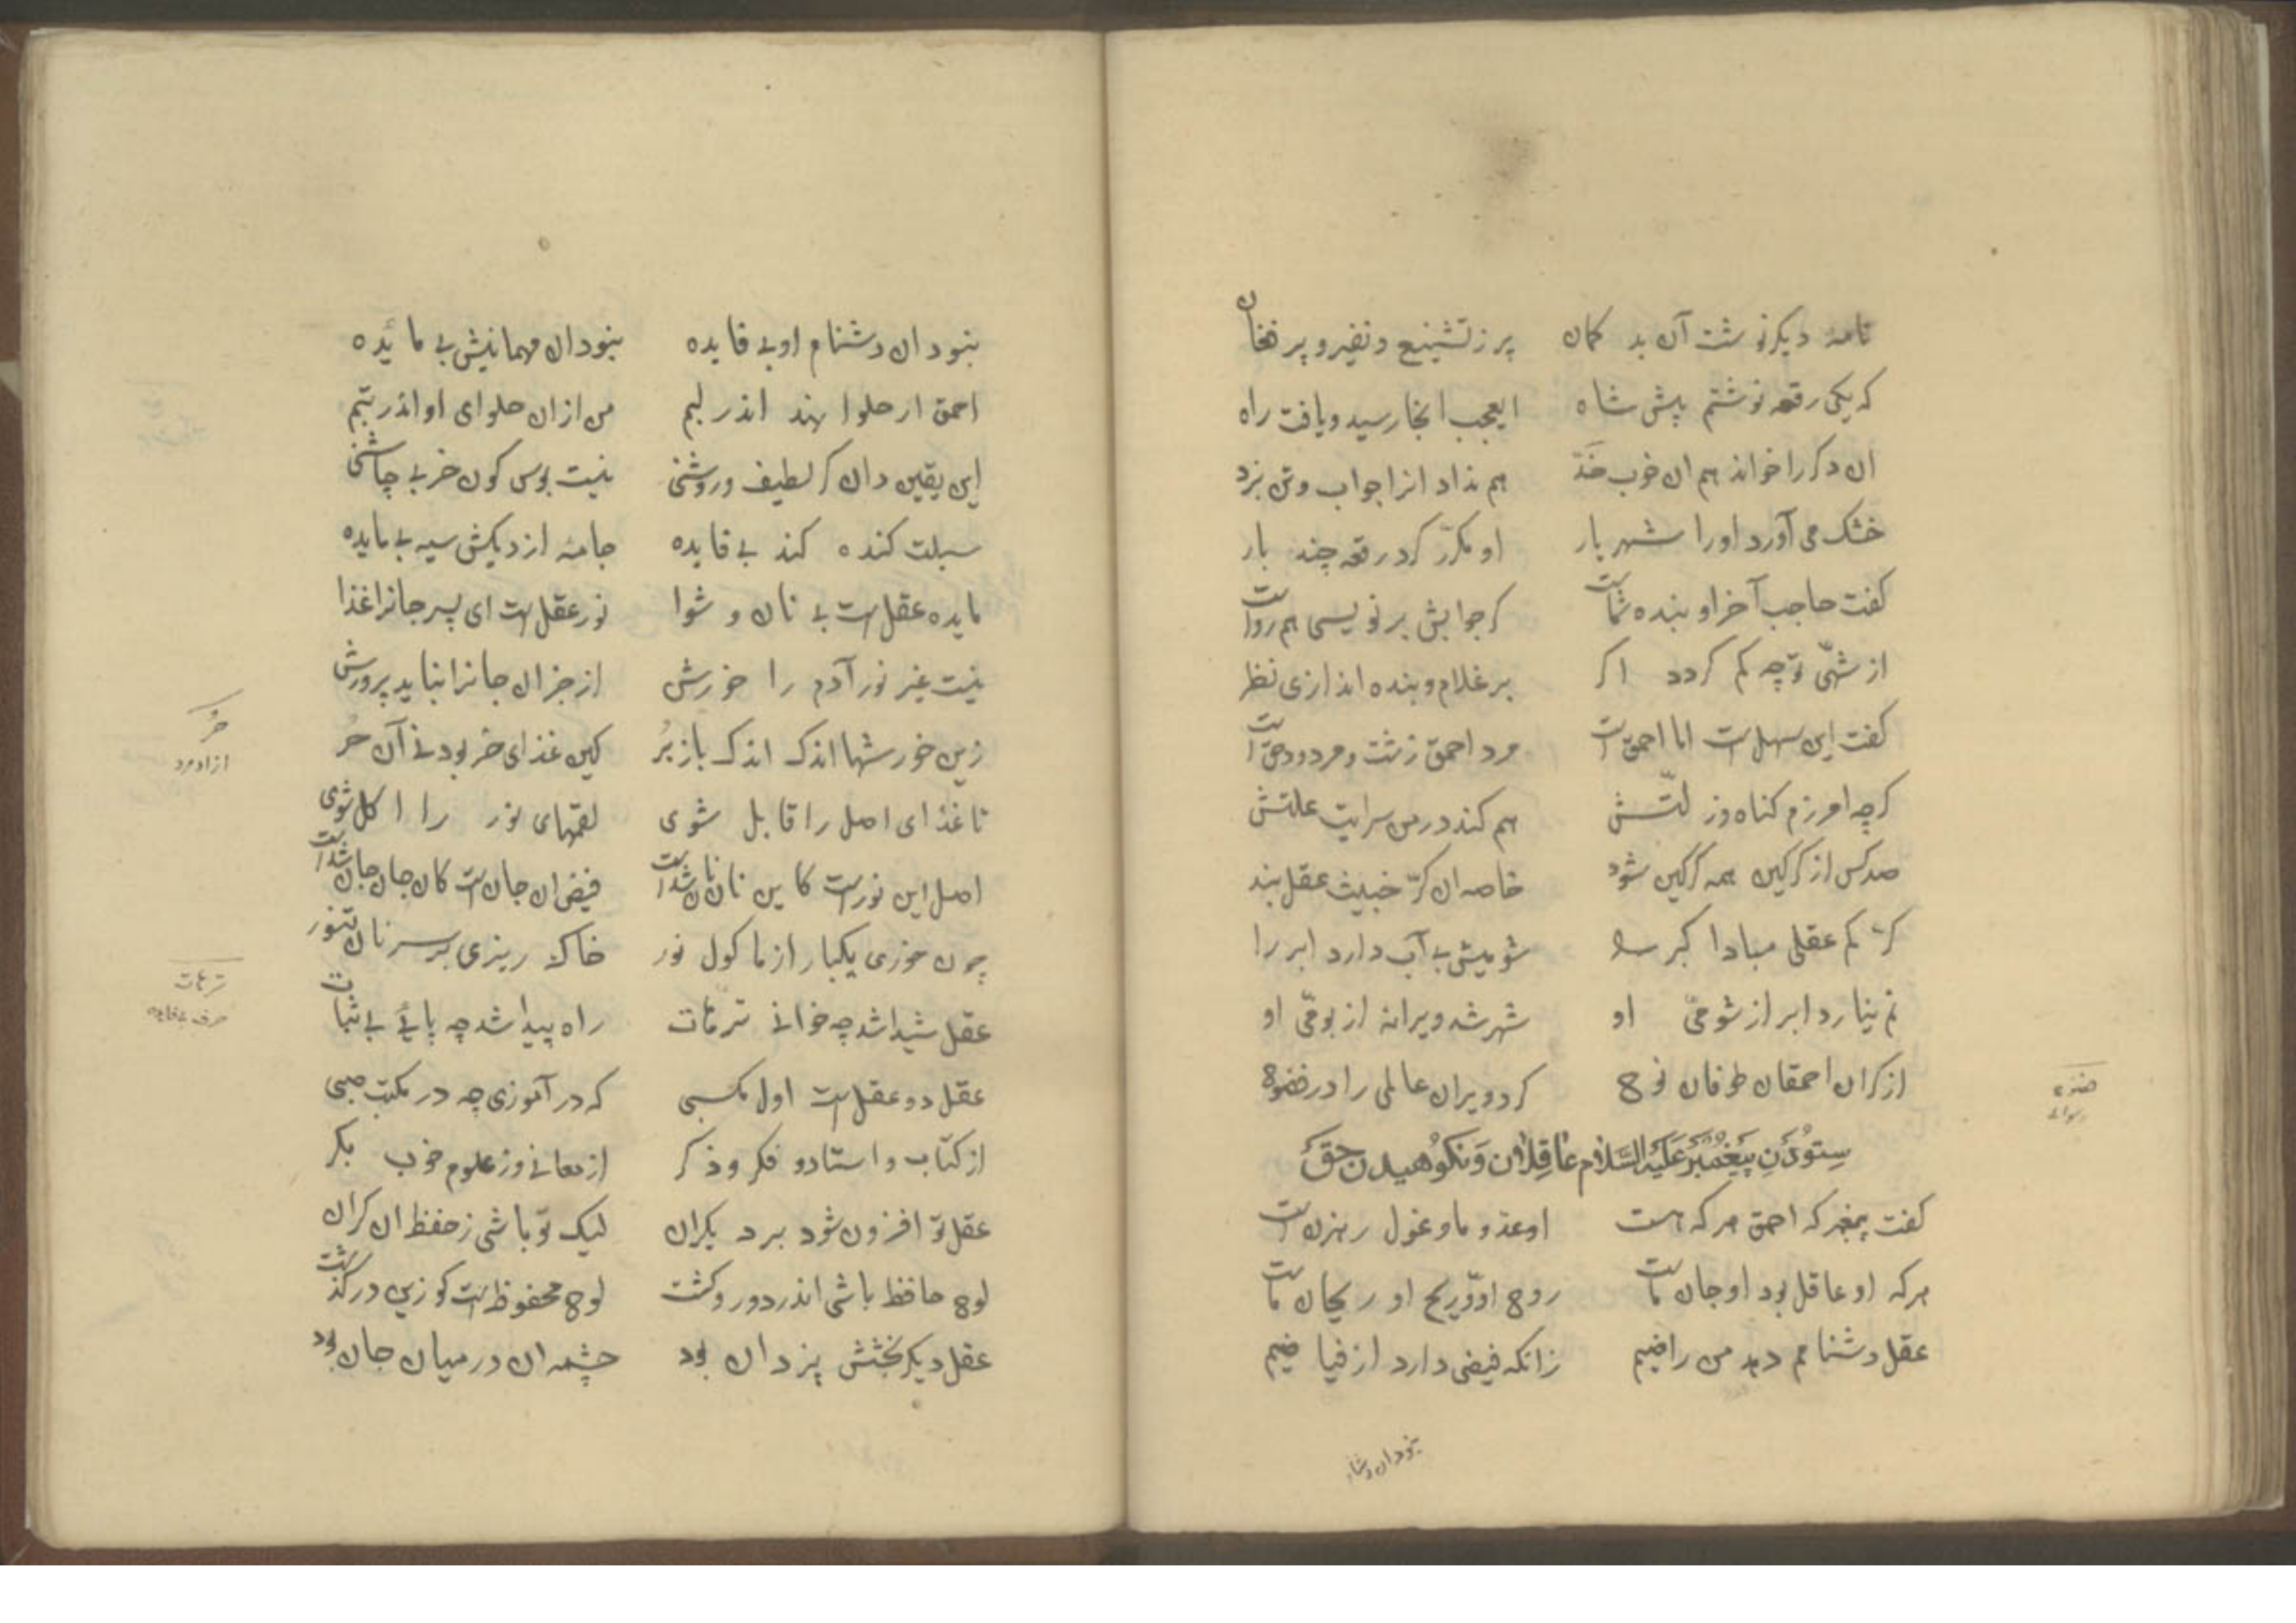 نامهٔ دیکر نوشت آن بد کمان پر ز تشنیع و نفیر و پر فغان
که یکی رقعه نوشتم پیش شاه ایعجب انجا رسید و یافت راه
ان دکر را خواند هم ان خوب خد هم نداد انرا جواب و تن بزد
خشک می آورد اورا شهریار او مکرّر کرد رقعه چند بار
کفت حاجب آخر او بنده شماست کر جوابش بر نویسی هم رواست
از شهیّ تو چه کم کردد اکر بر غلام و بنده اندازی نظر
کفت این سهل است اما احمق است مرد احمق زشت و مردود حق است
کرچه امرزم کناه وز لتّش هم کند در من سرایت علتش
صد کس از کرکین همه کرکین شود خاصه ان کرّ خبیث عقل بند
کر کم عقلی مبادا کبر را شومیش بی آب دارد ابر را
نم نبارد ابر از شومیّ او شهر شد ویرانه از بومیّ او
از کر ان احمقان طوفان نوح کرد ویران عالمی را در فضوح
فضوح
رسوای
سِتودَنِ پیغمبر عَلَیْهِ السَّلام عاقِلان وَ نکوُهیدن حمق
کفت پیغمبر که احمق هر که هست او عدو ما و غول رهزن است
هر که او عاقل بود او جان ماست روح او و ریح او ریحان ماست
عقل دشنامم دهد من راضیم زانکه فیضی دارد از فیاضیم
نبود ان دشنام
نبود ان دشنام او بی فایده نبود ان مهمانیش بی مائده
احمق ار حلوا نهد اندر لبم من از ان حلوای او اندر تبم
این یقین دان کر لطیف و روشنی نیست بوس کون خر بی چاشنی
سبلت کنده کند بی فایده جامه از دیکش سیه بی مایده
مایده عقل است بی نان و شوا نور عقل است ای پسر جانرا غذا
نیست غیر نور آدم را خورش از جز ان جانرا نیاید پرورش
زین خورشها اندک اندک باز بُر کین غذای خر بود نی آن حُر
حُر
ازاد مرد
تا غذای اصل را قابل شوی لقمهای نور را اکل شوی
اصل این نورست کاین نان نان شداست فیض ان جان است کان جان جان شداست
چون خوری یکبار از ماکول نور خاک ریزی بر سر نان تنور
ترهات
عقل شیدا شد چه خوانی ترهات راه پیدا شد چه پائی بی ثبات
عقل دو عقل است اول مکسبی که در آموزی چه در مکتب صبی
از کتاب و استاد و فکر و ذکر از معانی وز علوم خوب بکر
عقل تو افزون شود بر دیکران لیک تو باشی ز حفظ ان کران
لوح حافظ باشی اندر دور و کشت لوح محفوظ است کو زین در کذشت
عقل دیکر بخشش یزدان بود چشمه ان در میان جان بود